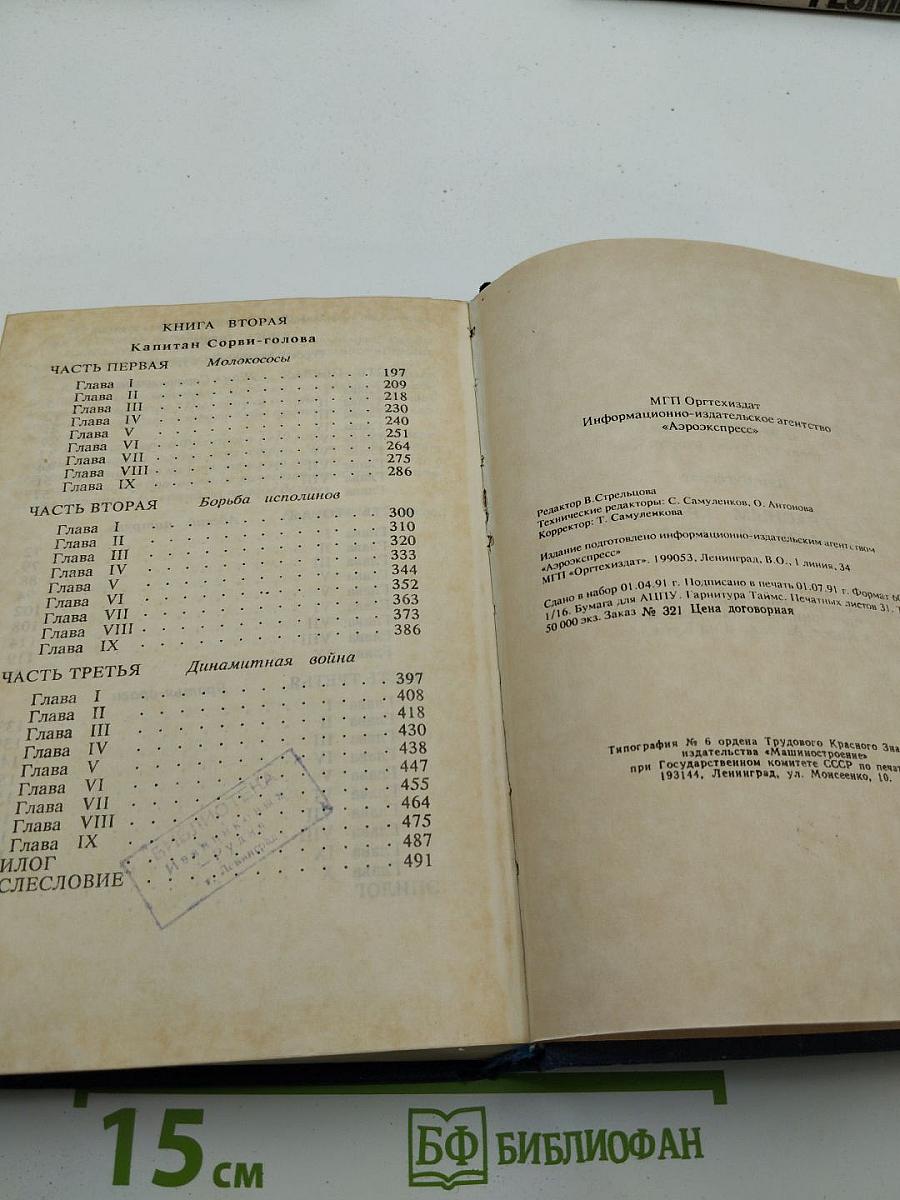 КНИГА ВТОРАЯ
Капитан Сорви-голова
ЧАСТЬ ПЕРВАЯ Молокососы
Глава I . . . 197
Глава II . . . 209
Глава III . . . 218
Глава IV . . . 230
Глава V . . . 240
Глава VI . . . 251
Глава VII . . . 264
Глава VIII . . . 275
Глава IX . . . 286
ЧАСТЬ ВТОРАЯ Борьба исполинов
Глава I . . . 300
Глава II . . . 310
Глава III . . . 320
Глава IV . . . 333
Глава V . . . 344
Глава VI . . . 352
Глава VII . . . 363
Глава VIII . . . 373
Глава IX . . . 386
ЧАСТЬ ТРЕТЬЯ Динамитная война
Глава I . . . 397
Глава II . . . 408
Глава III . . . 418
Глава IV . . . 430
Глава V . . . 438
Глава VI . . . 447
Глава VII . . . 455
Глава VIII . . . 464
Глава IX . . . 475
ИЛОГ . . . 487
СЛЕСЛОВИЕ . . . 491
БИБЛИОТЕКА
г. Ленинград
МГП Оргтехиздат
Информационно-издательское агентство
«Аэроэкспресс»
Редактор В.Стрельцова
Технические редакторы: С. Самуленков, О. Антонова
Корректор: Т. Самуленкова
Издание подготовлено информационно-издательским агентством
«Аэроэкспресс»
МГП «Оргтехиздат». 199053, Ленинград, В.О., 1 линия, 34
Сдано в набор 01.04.91 г. Подписано в печать 01.07.91 г. Формат 60
1/16. Бумага для АППУ. Гарнитура Таймс. Печатных листов 31. Т
50 000 экз. Заказ № 321 Цена договорная
Типография № 6 ордена Трудового Красного Зна
издательства «Машиностроение»
при Государственном комитете СССР по печат
193144, Ленинград, ул. Моисеенко, 10.
15 см
БФ БИБЛИОФАН